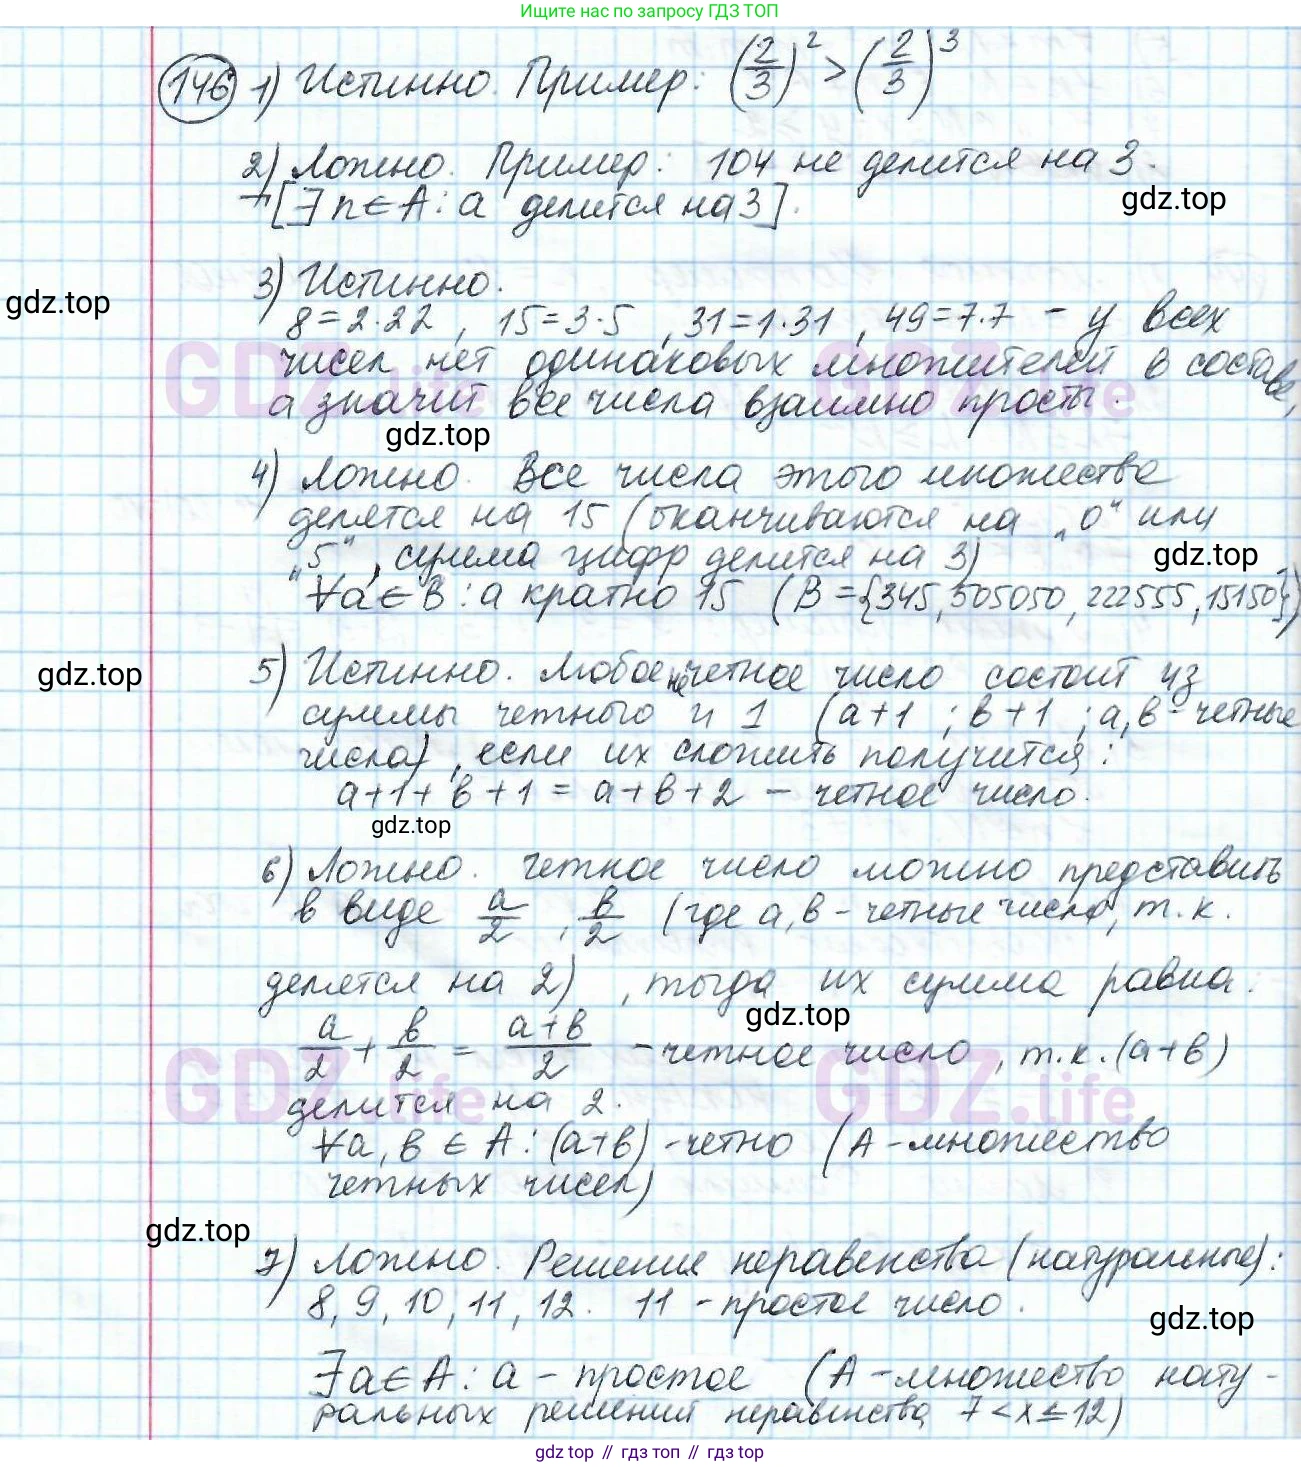 Ищите нас по запросу ГДЗ ТОП
146 1) Истинно. Пример: (2/3)² > (2/3)³
2) Ложно. Пример: 104 не делится на 3.
[∃ n ∈ A : a делится на 3].
gdz.top
3) Истинно.
gdz.top
8=2·22, 15=3·5, 31=1·31, 49=7·7 – у всех
чисел нет одинаковых множителей в составе,
а значит все числа взаимно просты.
GDZ.life GDZ.life
gdz.top
4) Ложно. Все числа этого множества
делятся на 15 (оканчиваются на „0" или
„5", сумма цифр делится на 3)
gdz.top
∀a ∈ B : a кратно 15 (B = {345, 505050, 222555, 15150})
5) Истинно. Любое нечетное число состоит из
gdz.top
суммы четного и 1 (a+1 ; b+1 ; a, b – четные
числа), если их сложить получится:
a+1+b+1 = a+b+2 – четное число.
gdz.top
6) Ложно. Четное число можно представить
в виде a/2, b/2 (где a, b – четные числа, т.к.
делятся на 2), тогда их сумма равна:
gdz.top
a/2 + b/2 = (a+b)/2 – четное число, т.к. (a+b)
GDZ.life GDZ.life
делится на 2.
∀a, b ∈ A : (a+b) – четно (A – множество
четных чисел)
gdz.top
7) Ложно. Решения неравенства (натуральные):
8, 9, 10, 11, 12. 11 – простое число.
gdz.top
∃ a ∈ A : a – простое (A – множество нату-
ральных решений неравенства 7 < x ≤ 12)
gdz top // гдз топ // гдз top